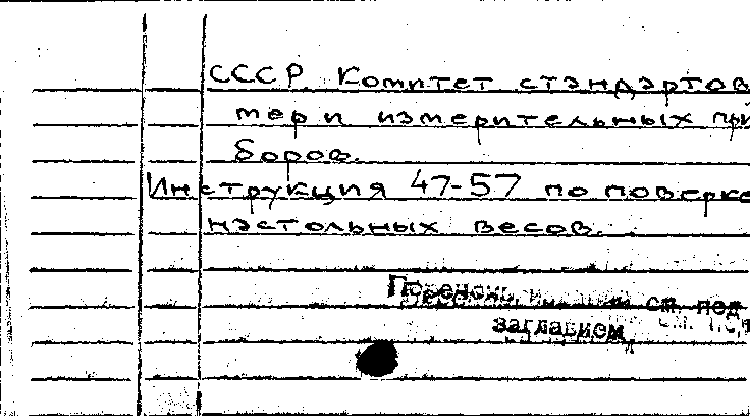 СССР. Комитет стандартов
мер и измерительных при
боров.
Инструкция 47-57 по поверке
настольных весов.
см. под
заглавием